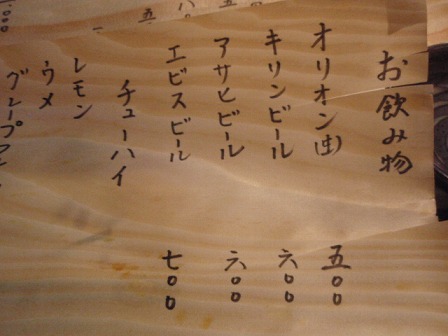 お飲み物
オリオン(生) 五〇〇
キリンビール 六〇〇
アサヒビール 六〇〇
エビスビール 七〇〇
チューハイ
レモン
ウメ